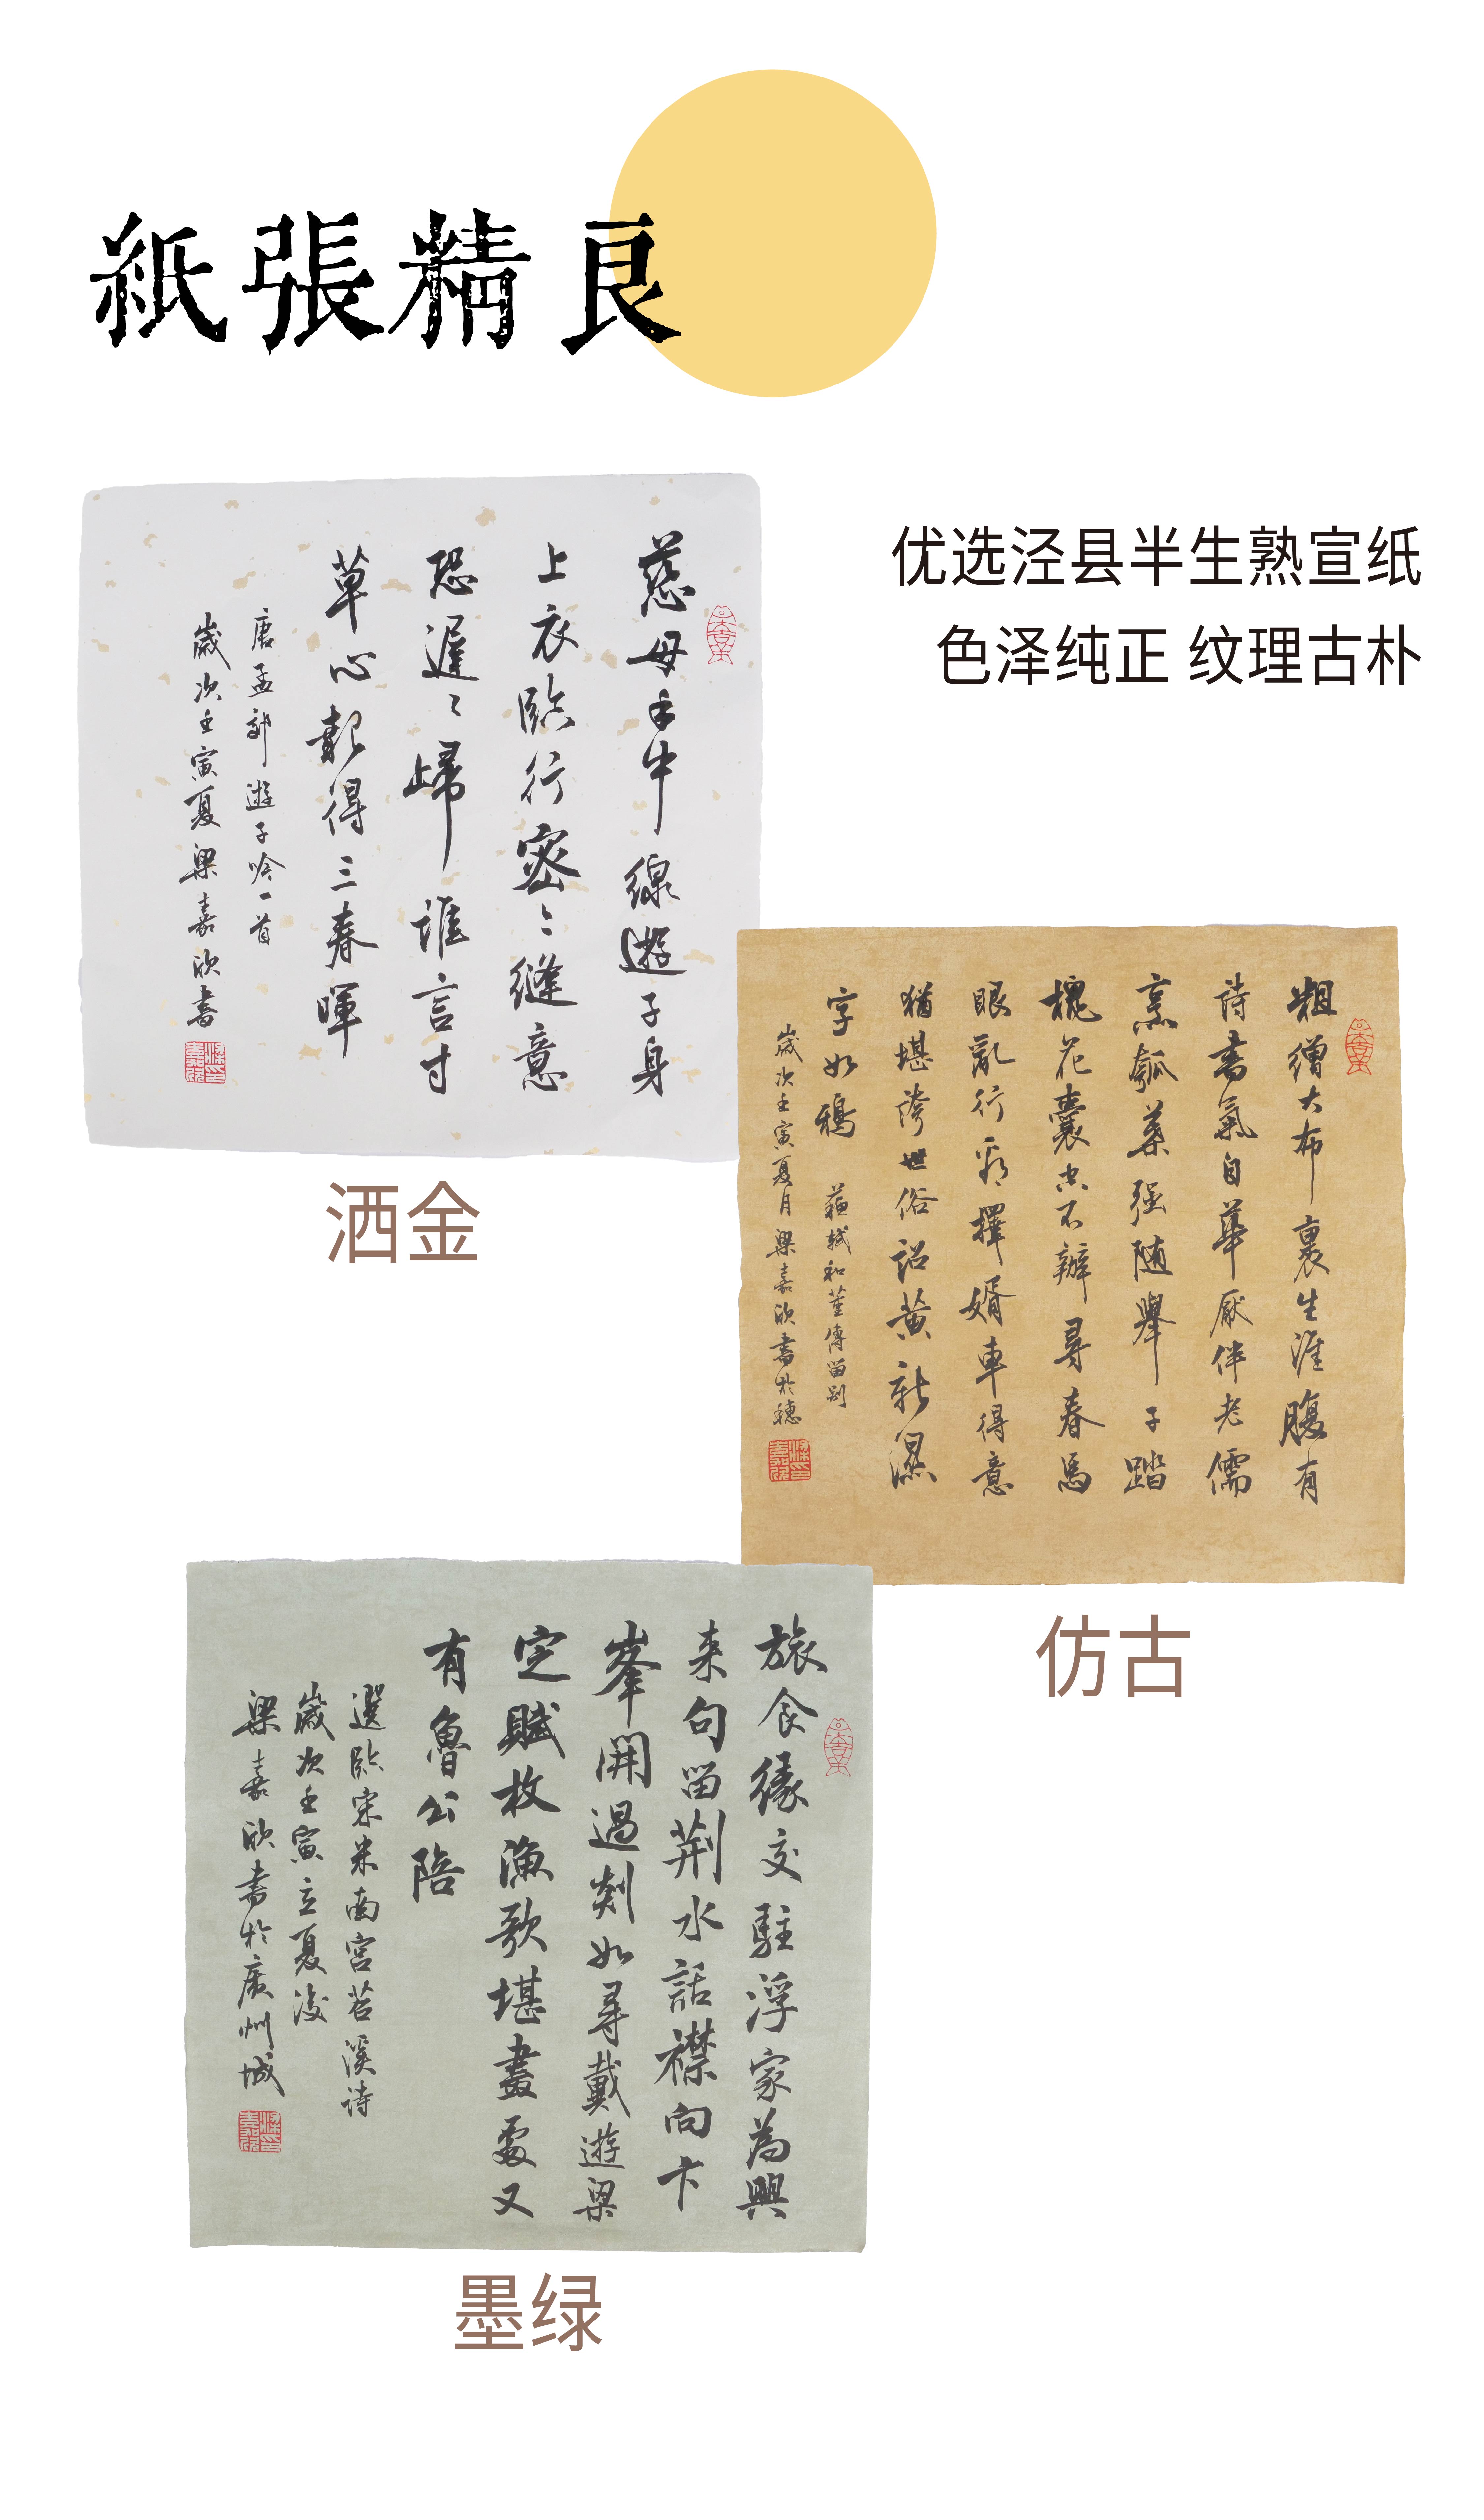 紙張精良
优选泾县半生熟宣纸
色泽纯正 纹理古朴
慈母手中線遊子身
上衣臨行密〻縫意
恐遲〻歸誰言寸
草心報得三春暉
唐孟郊遊子吟一首
歲次壬寅夏梁嘉欣書
洒金
粗繒大布裹生涯腹有
詩書氣自華厭伴老儒
烹瓠葉强随舉子踏
槐花囊空不辦尋春馬
眼亂行看擇婿車得意
猶堪誇世俗詔黄新濕
字如鴉
蘇軾和董傳留别
歲次壬寅夏月梁嘉欣書於穗
仿古
旅食緣交駐浮家為興
来句留荆水話襟向卞
峯開過剡如尋戴遊梁
定賦枚漁歌堪畫處又
有魯公陪
選臨宋米南宫苕溪詩
歲次壬寅立夏後
梁嘉欣書於廣州城
墨绿